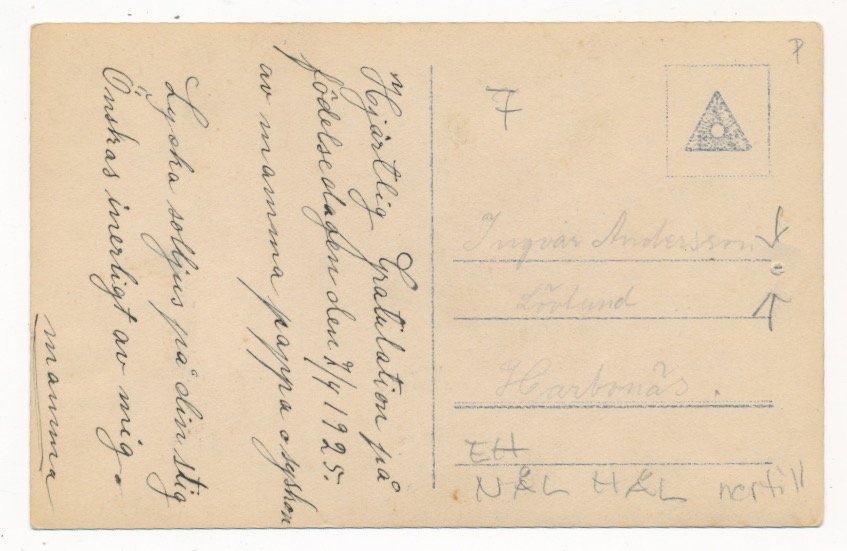 Hjärtlig Gratulation på
födelsedagen den 7/9 1925.
av mamma pappa o syskon
Lycka solljus på din stig
Önskas inerligt av mig.
mamma
P
7
Ingvar Andersson
Lövlund
Harbonäs.
EH
NÅL HÅL nertill